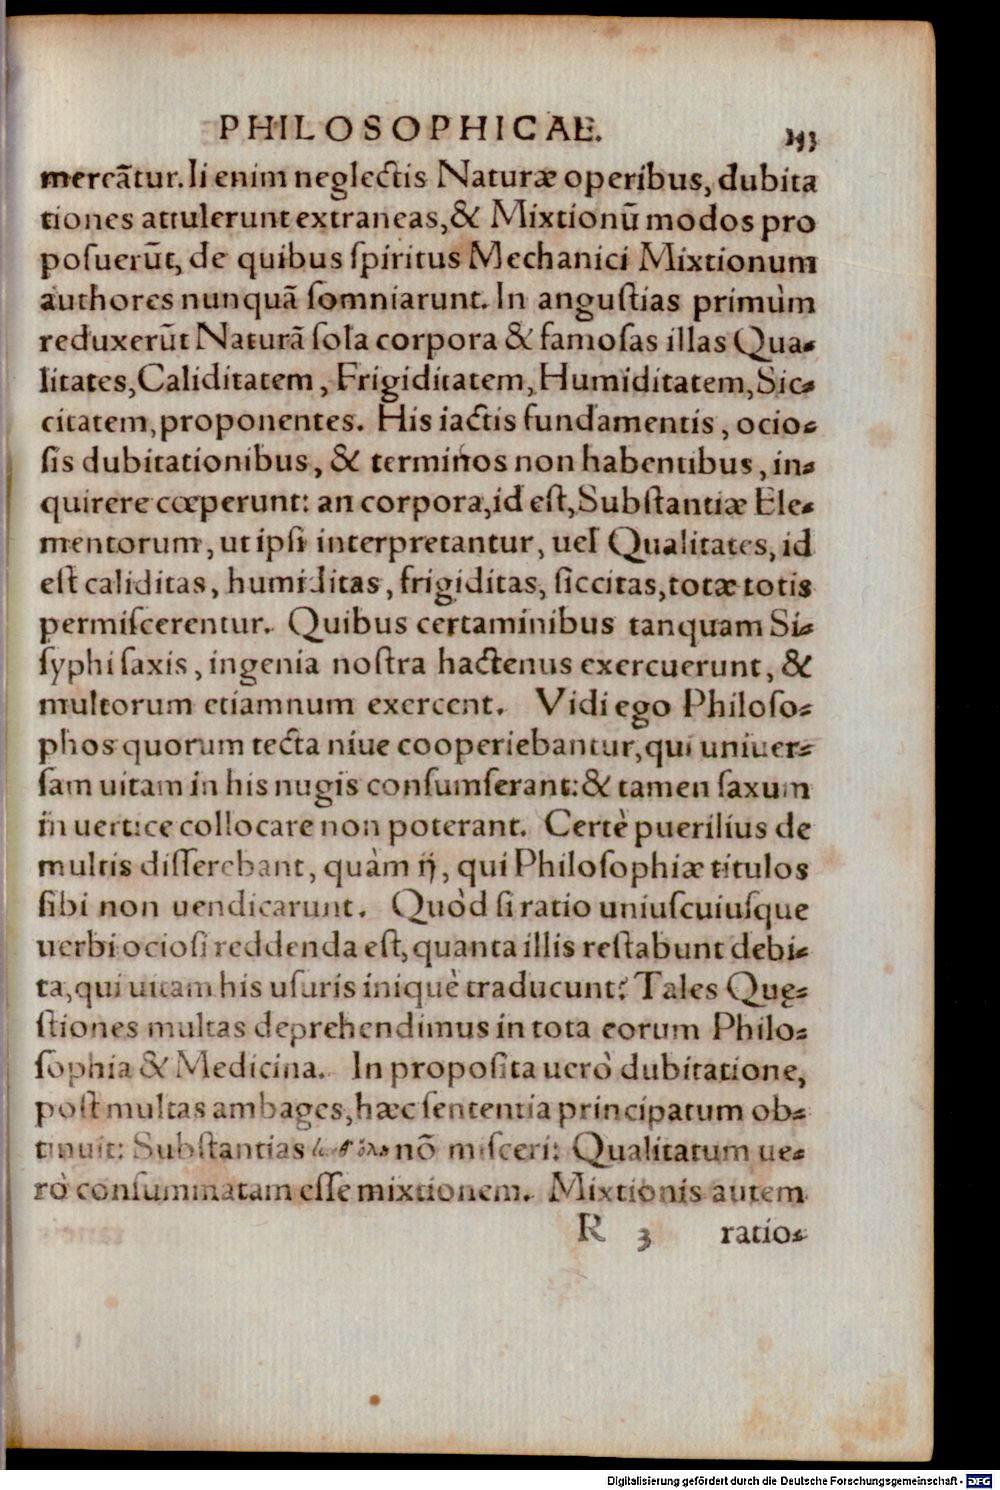 PHILOSOPHICAE.
mercãtur. Ii enim neglectis Naturæ operibus, dubita
tiones attulerunt extraneas, & Mixtionũ modos pro
posuerũt, de quibus spiritus Mechanici Mixtionum
authores nunquã somniarunt. In angustias primùm
reduxerũt Naturã sola corpora & famosas illas Qua-
litates, Caliditatem, Frigiditatem, Humiditatem, Sic-
citatem, proponentes. His iactis fundamentis, ocio-
sis dubitationibus, & terminos non habentibus, in-
quirere cœperunt: an corpora, id est, Substantiæ Ele-
mentorum, ut ipsi interpretantur, uel Qualitates, id
est caliditas, humiditas, frigiditas, siccitas, totæ totis
permiscerentur. Quibus certaminibus tanquam Si-
syphi saxis, ingenia nostra hactenus exercuerunt, &
multorum etiamnum exercent. Vidi ego Philoso-
phos quorum tecta niue cooperiebantur, qui uniuer-
sam uitam in his nugis consumserant: & tamen saxum
in uertice collocare non poterant. Certè puerilius de
multis disserebant, quàm ij, qui Philosophiæ titulos
sibi non uendicarunt. Quòd si ratio uniuscuiusque
uerbi ociosi reddenda est, quanta illis restabunt debi-
ta, qui uitam his usuris iniquè traducunt? Tales Quę-
stiones multas deprehendimus in tota eorum Philo-
sophia & Medicina. In proposita uerò dubitatione,
post multas ambages, hæc sententia principatum ob-
tinuit: Substantias nõ misceri: Qualitatum ue-
rò consummatam esse mixtionem. Mixtionis autem
R 3 ratio-
Digitalisierung gefördert durch die Deutsche Forschungsgemeinschaft - DFG